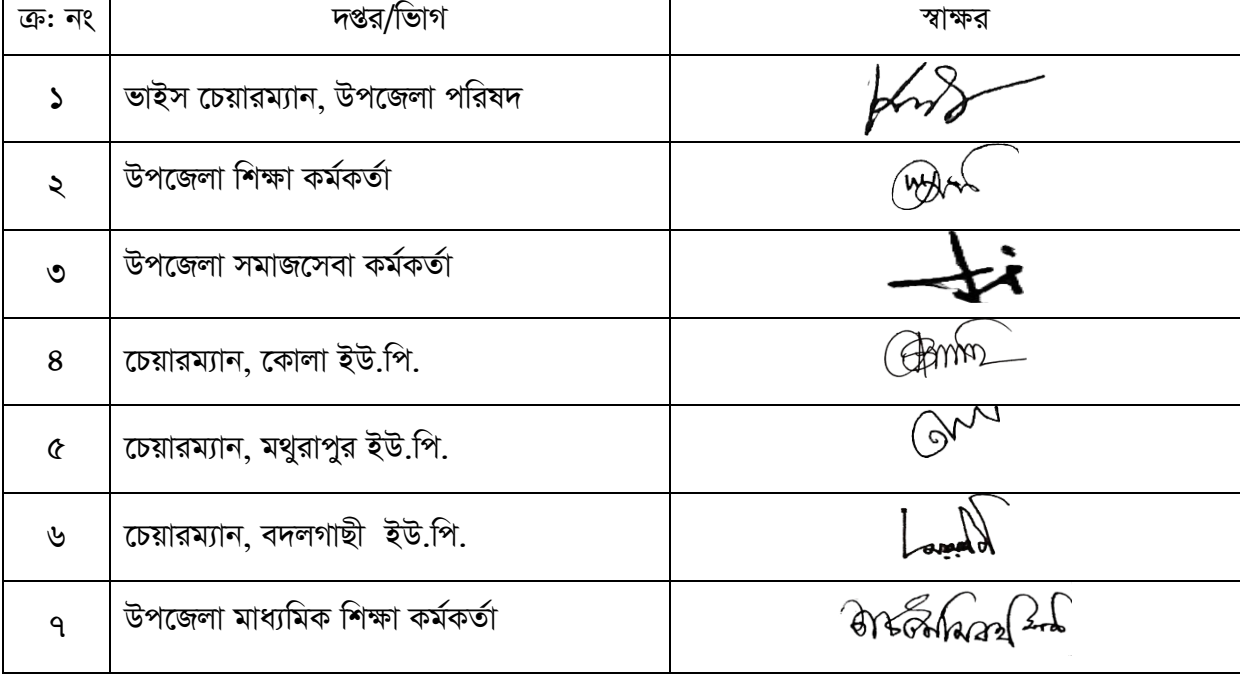 ক্র: নং দপ্তর/ভিাগ স্বাক্ষর
১ ভাইস চেয়ারম্যান, উপজেলা পরিষদ
২ উপজেলা শিক্ষা কর্মকর্তা
৩ উপজেলা সমাজসেবা কর্মকর্তা
৪ চেয়ারম্যান, কোলা ইউ.পি.
৫ চেয়ারম্যান, মথুরাপুর ইউ.পি.
৬ চেয়ারম্যান, বদলগাছী ইউ.পি.
৭ উপজেলা মাধ্যমিক শিক্ষা কর্মকর্তা